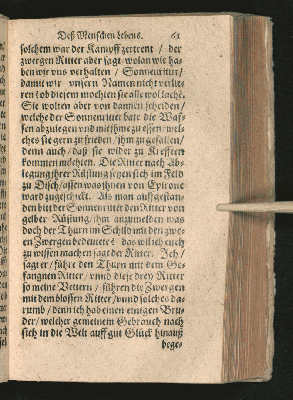 Deß Menschen Lebens. 61
solchem war der Kampff zertrent / der
zwergen Ritter aber sagt / wolan wie ha-
ben wir uns verhalten / Sonnenritter /
damit wir unsern Namen nicht verlie-
ren? ob diesem mochten sie alle wol lachẽ /
Sie wolten aber von dannen scheiden /
welche der Sonnenritter bate die Waf-
fen abzulegen und mit ihme zu essen / wel-
ches sie gern zu frieden / ihm zu gefallen /
denn auch / daß sie wider zu Kräfften
kommen möchten. Die Ritter nach Ab-
legung ihrer Rüstung setzen sich im Feld
zu Disch / assen was ihnen von Epirone
ward zugeschickt. Als man auffgestan-
den bitt der Sonnenritter den Ritter von
gelber Rüstung / ihm anzumelden was
doch der Thurn im Schild mit den zwe-
en Zwergen bedeutete? das will ich euch
zu wissen machen sagt der Ritter. Ich /
sagt er / führe den Thurn mit dem Ge-
fangnen Ritter / und diese drey Ritter
so meine Vettern / führen die Zwergen
mit dem blossen Ritter / und solch es da-
rumb / denn ich hab einen einigen Bru-
der / welcher gemeinem Gebrauch nach
sich in die Welt auff gut Glück hinauß
bege-